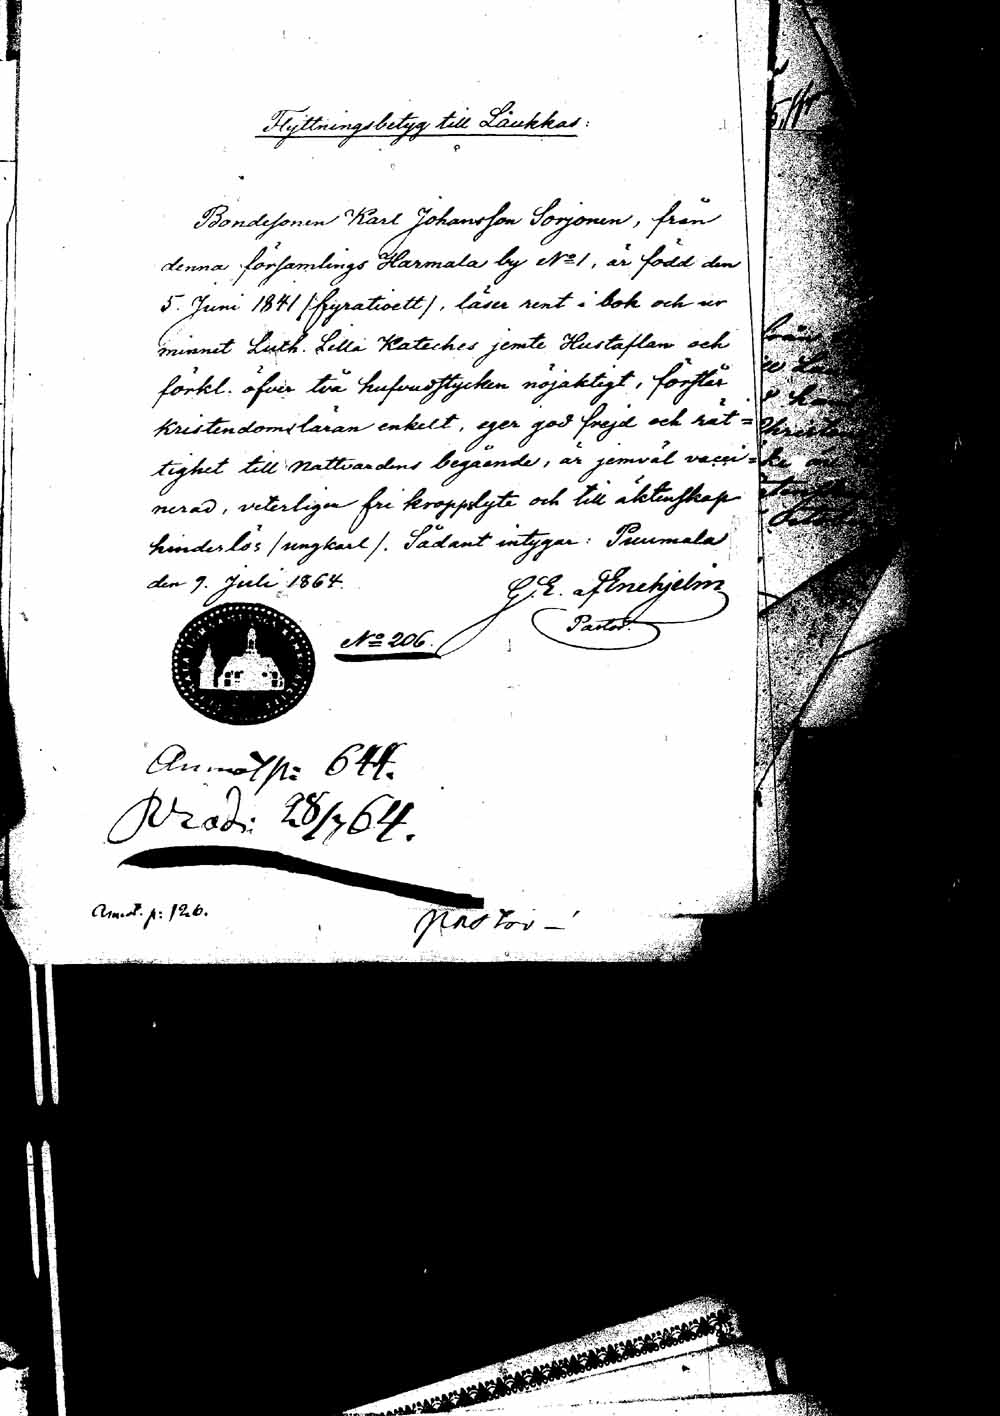 Flyttningsbetyg till Laukkas:
Bondesonen Karl Johansson Sorjonen, från
denna församlings Harmala by No 1, är född den
5. Juni 1841 /fyratioett/, läser rent i bok och ur
minnet Luth. Lilla Kateches jemte Hustaflan och
förkl. öfver två hufvudstycken nöjaktigt, förstår
kristendomsläran enkelt, eger god frejd och rät=
tighet till Nattvardens begående, är jemväl vacci=
nerad, veterligen fri kroppslyte och till äktenskap
hinderlös /ungkarl/. Sådant intygar: Puumala
den 9. Juli 1864.
G.E. af Enehjelm
Pastor.
No 206.
Anmält p: 644.
28/7 64.
Anmt. p: 126.
Pastor –